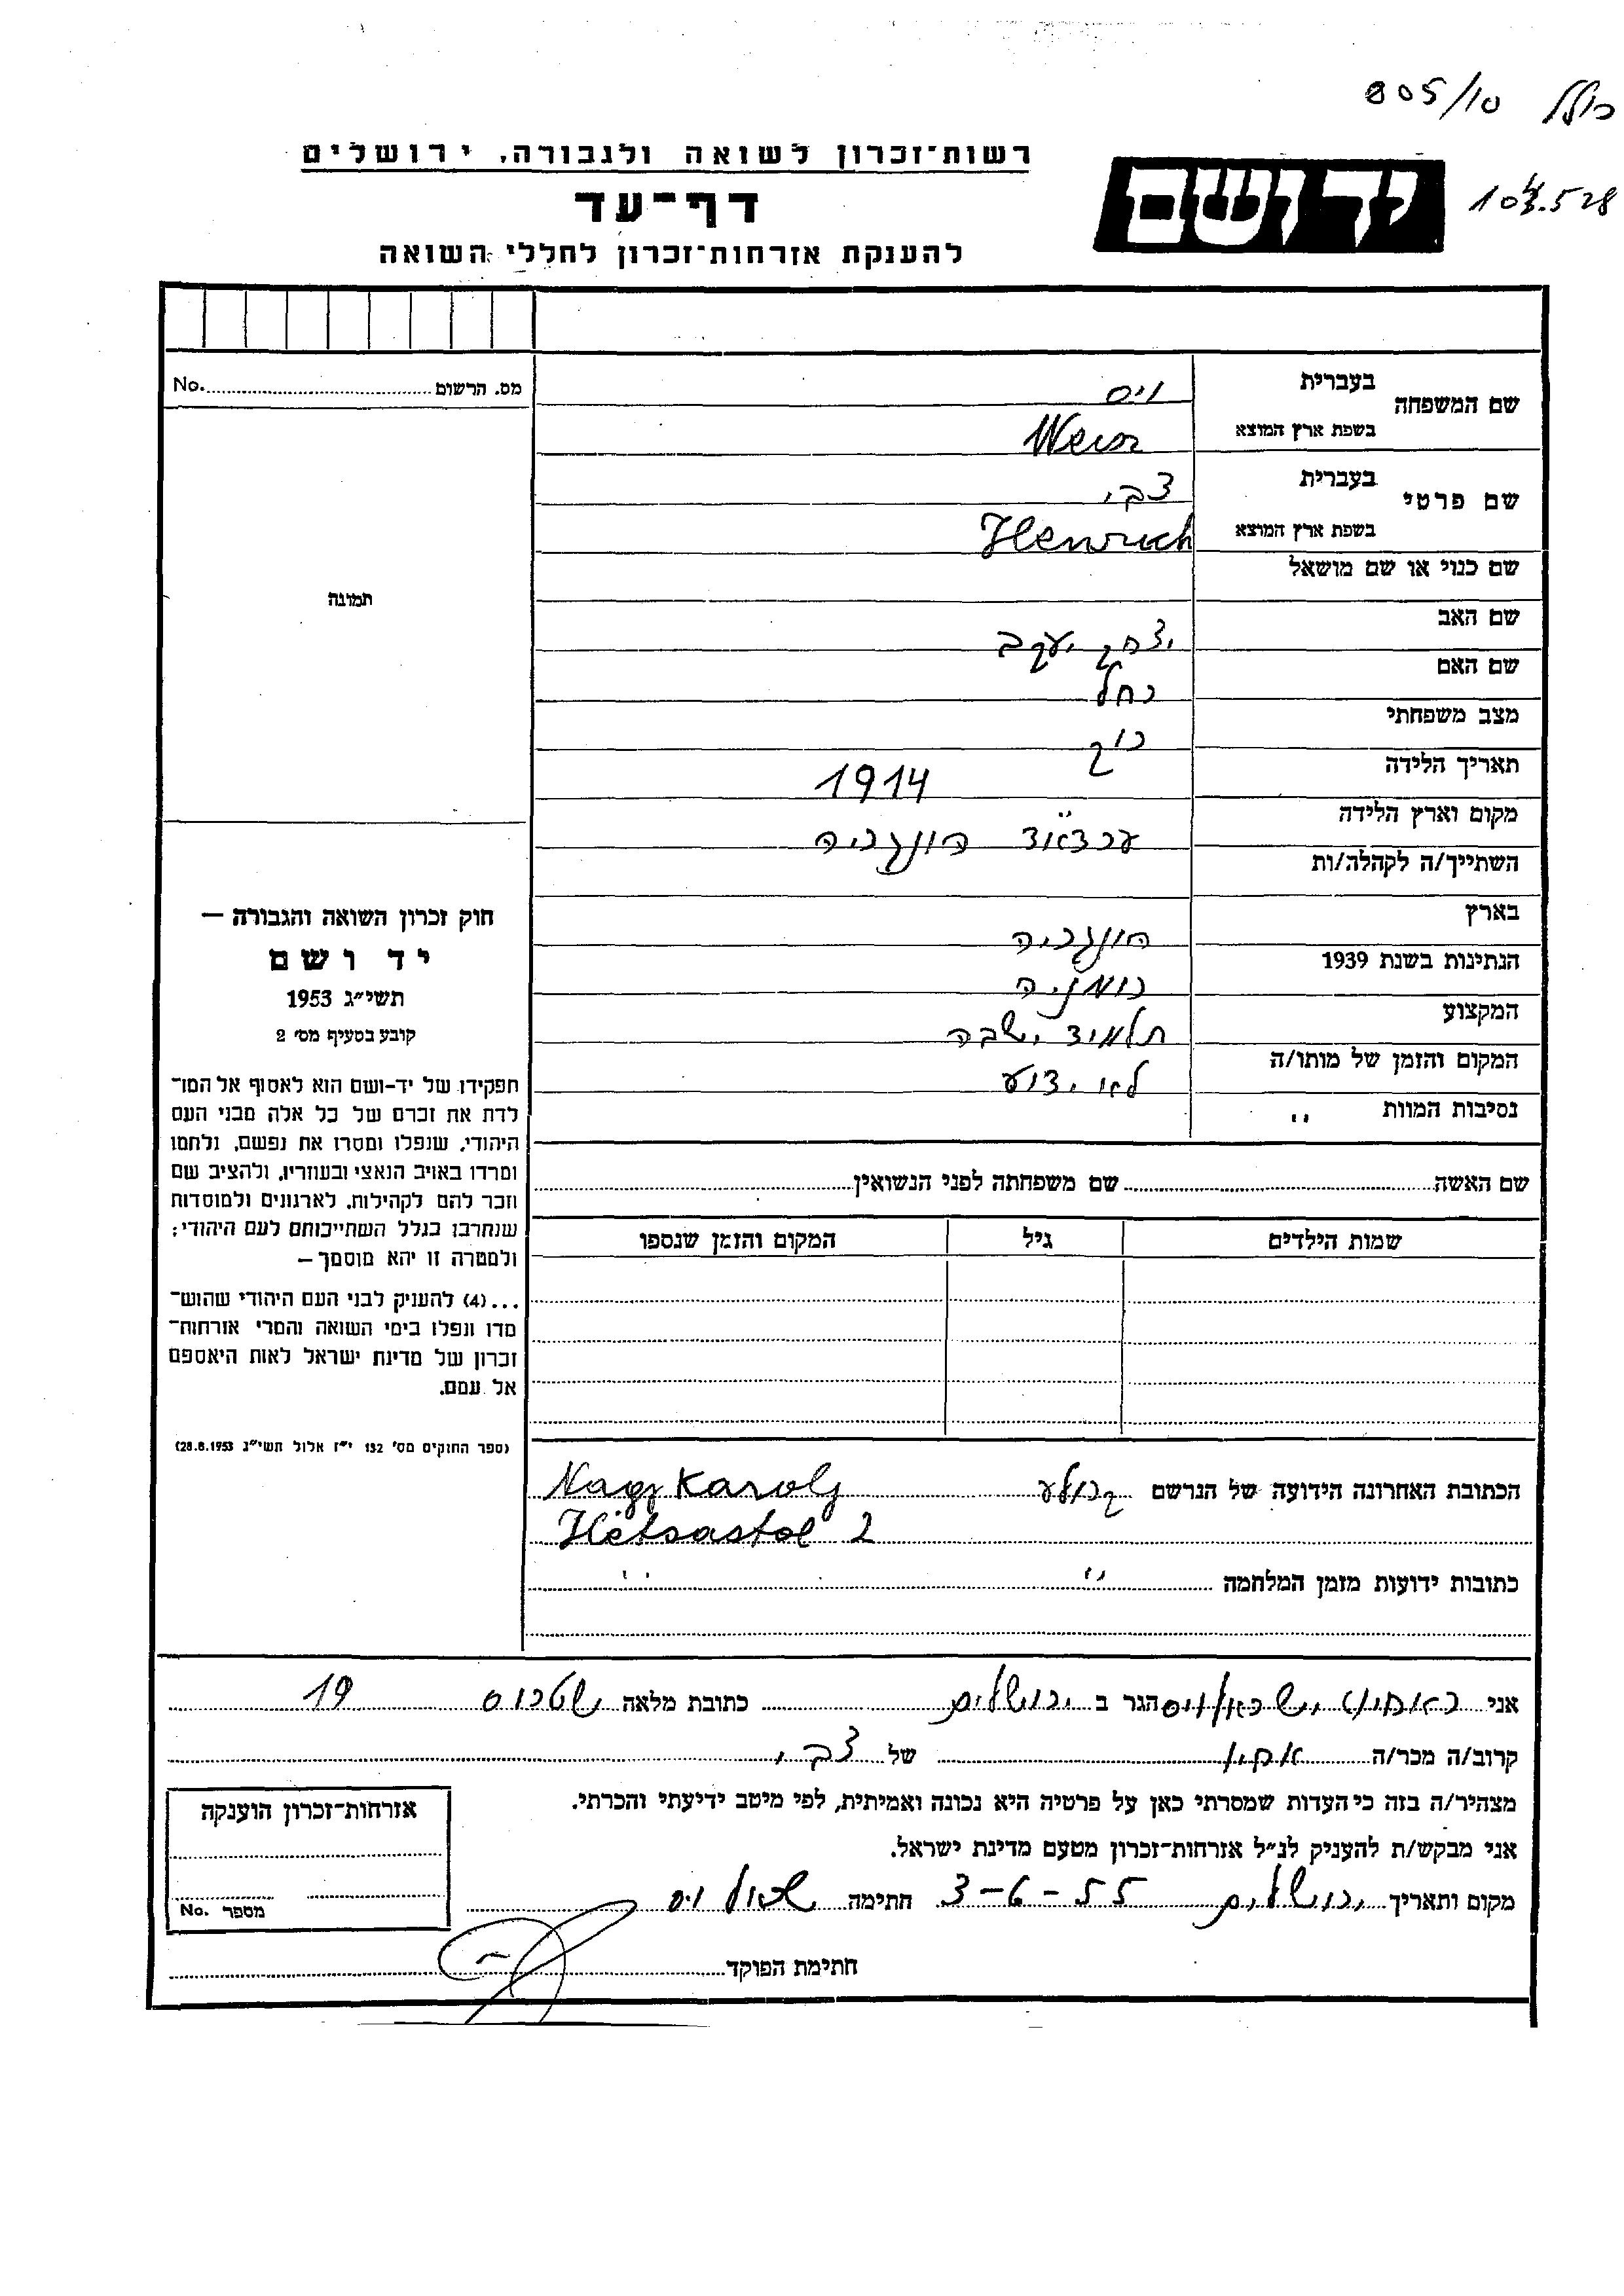 805/10
רשות־זכרון לשואה ולגבורה, ירושלים
יד ושם
דף־עד
להענקת אזרחות־זכרון לחללי השואה
מס. הרשום No.
תמונה
שם המשפחה
בעברית
ויס
בשפת ארץ המוצא
Weisz
שם פרטי
בעברית
צבי
בשפת ארץ המוצא
Henrich
שם כנוי או שם מושאל
שם האב
יצחק יעקב
שם האם
רחל
מצב משפחתי
רוק
תאריך הלידה
1914
מקום וארץ הלידה
הונגריה
השתייך/ה לקהלה/ות
בארץ
הונגריה
הנתינות בשנת 1939
רומניה
המקצוע
תלמיד ישבה
המקום והזמן של מותו/ה
לא ידוע
נסיבות המוות "
חוק זכרון השואה והגבורה —
יד ושם
תשי״ג 1953
קובע בסעיף מס׳ 2
תפקידו של יד-ושם הוא לאסוף אל המו־
לדת את זכרם של כל אלה מבני העם
היהודי, שנפלו ומסרו את נפשם, נלחמו
ומרדו באויב הנאצי ובעוזריו, ולהציב שם
וזכר להם לקהילות, לארגונים ולמוסדות
שנחרבו בגלל השתייכותם לעם היהודי;
ולמטרה זו יהא מוסמך —
...(4) להעניק לבני העם היהודי שהוש־
מדו ונפלו בימי השואה והמרי אזרחות־
זכרון של מדינת ישראל לאות היאספם
אל עמם.
(ספר החוקים מס׳ 132 י״ז אלול תשי״ג 28.8.1953)
שם האשה שם משפחתה לפני הנשואין
שמות הילדים גיל המקום והזמן שנספו
הכתובת האחרונה הידועה של הנרשם Nagy Karoly
Hétsastol 2
כתובות ידועות מזמן המלחמה " "
אני ישראל ויס הגר ב ירושלים כתובת מלאה שטרוס 19
קרוב/ה מכר/ה אחיו של צבי
מצהיר/ה בזה כי העדות שמסרתי כאן על פרטיה היא נכונה ואמיתית, לפי מיטב ידיעתי והכרתי.
אני מבקש/ת להעניק לנ״ל אזרחות־זכרון מטעם מדינת ישראל.
מקום ותאריך ירושלים 3-6-55 חתימה ויס
חתימת הפוקד
אזרחות־זכרון הוענקה
מספר No.